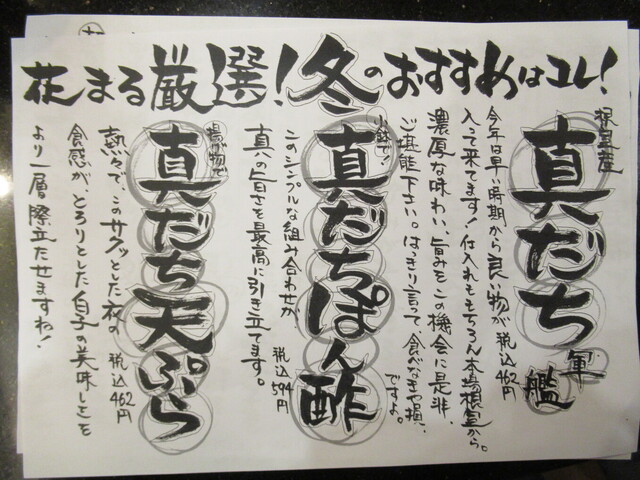 花まる厳選!冬のおすすめはコレ!
根室産
真だち軍艦
税込462円
今年は早い時期から良い物が
入って来てます!仕入れももちろん本場根室から。
濃厚な味わい、旨みをこの機会に是非、
ご堪能下さい。はっきり言って、食べなきゃ損、
ですよ。
小鉢で!
真だちぽん酢
税込594円
このシンプルな組み合わせが、
真だちの旨さを最高に引き立てます。
揚げ物で
真だち天ぷら
税込462円
熱々で、このサクッとした衣の
食感が、とろりとした白子の美味しさを
より一層際立たせますね!